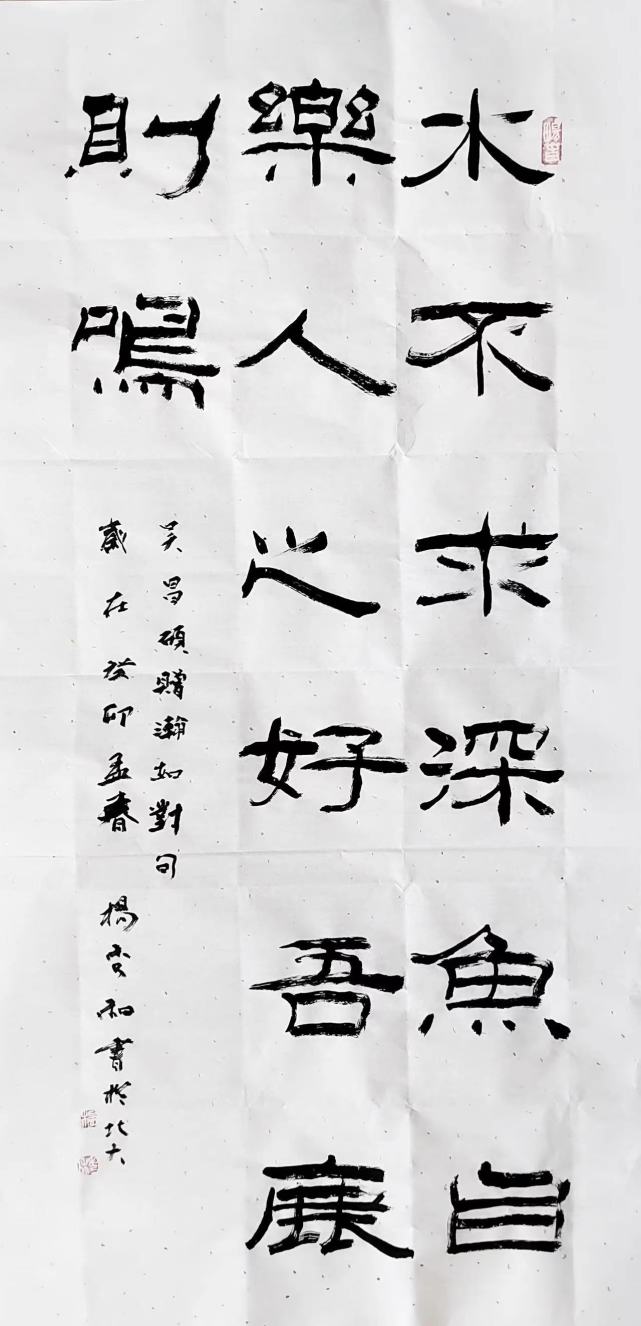 水不求深魚自
樂人之好吾廉
則鳴
吳昌碩贈瀚如對句
歲在癸卯孟春 楊 和書於北大